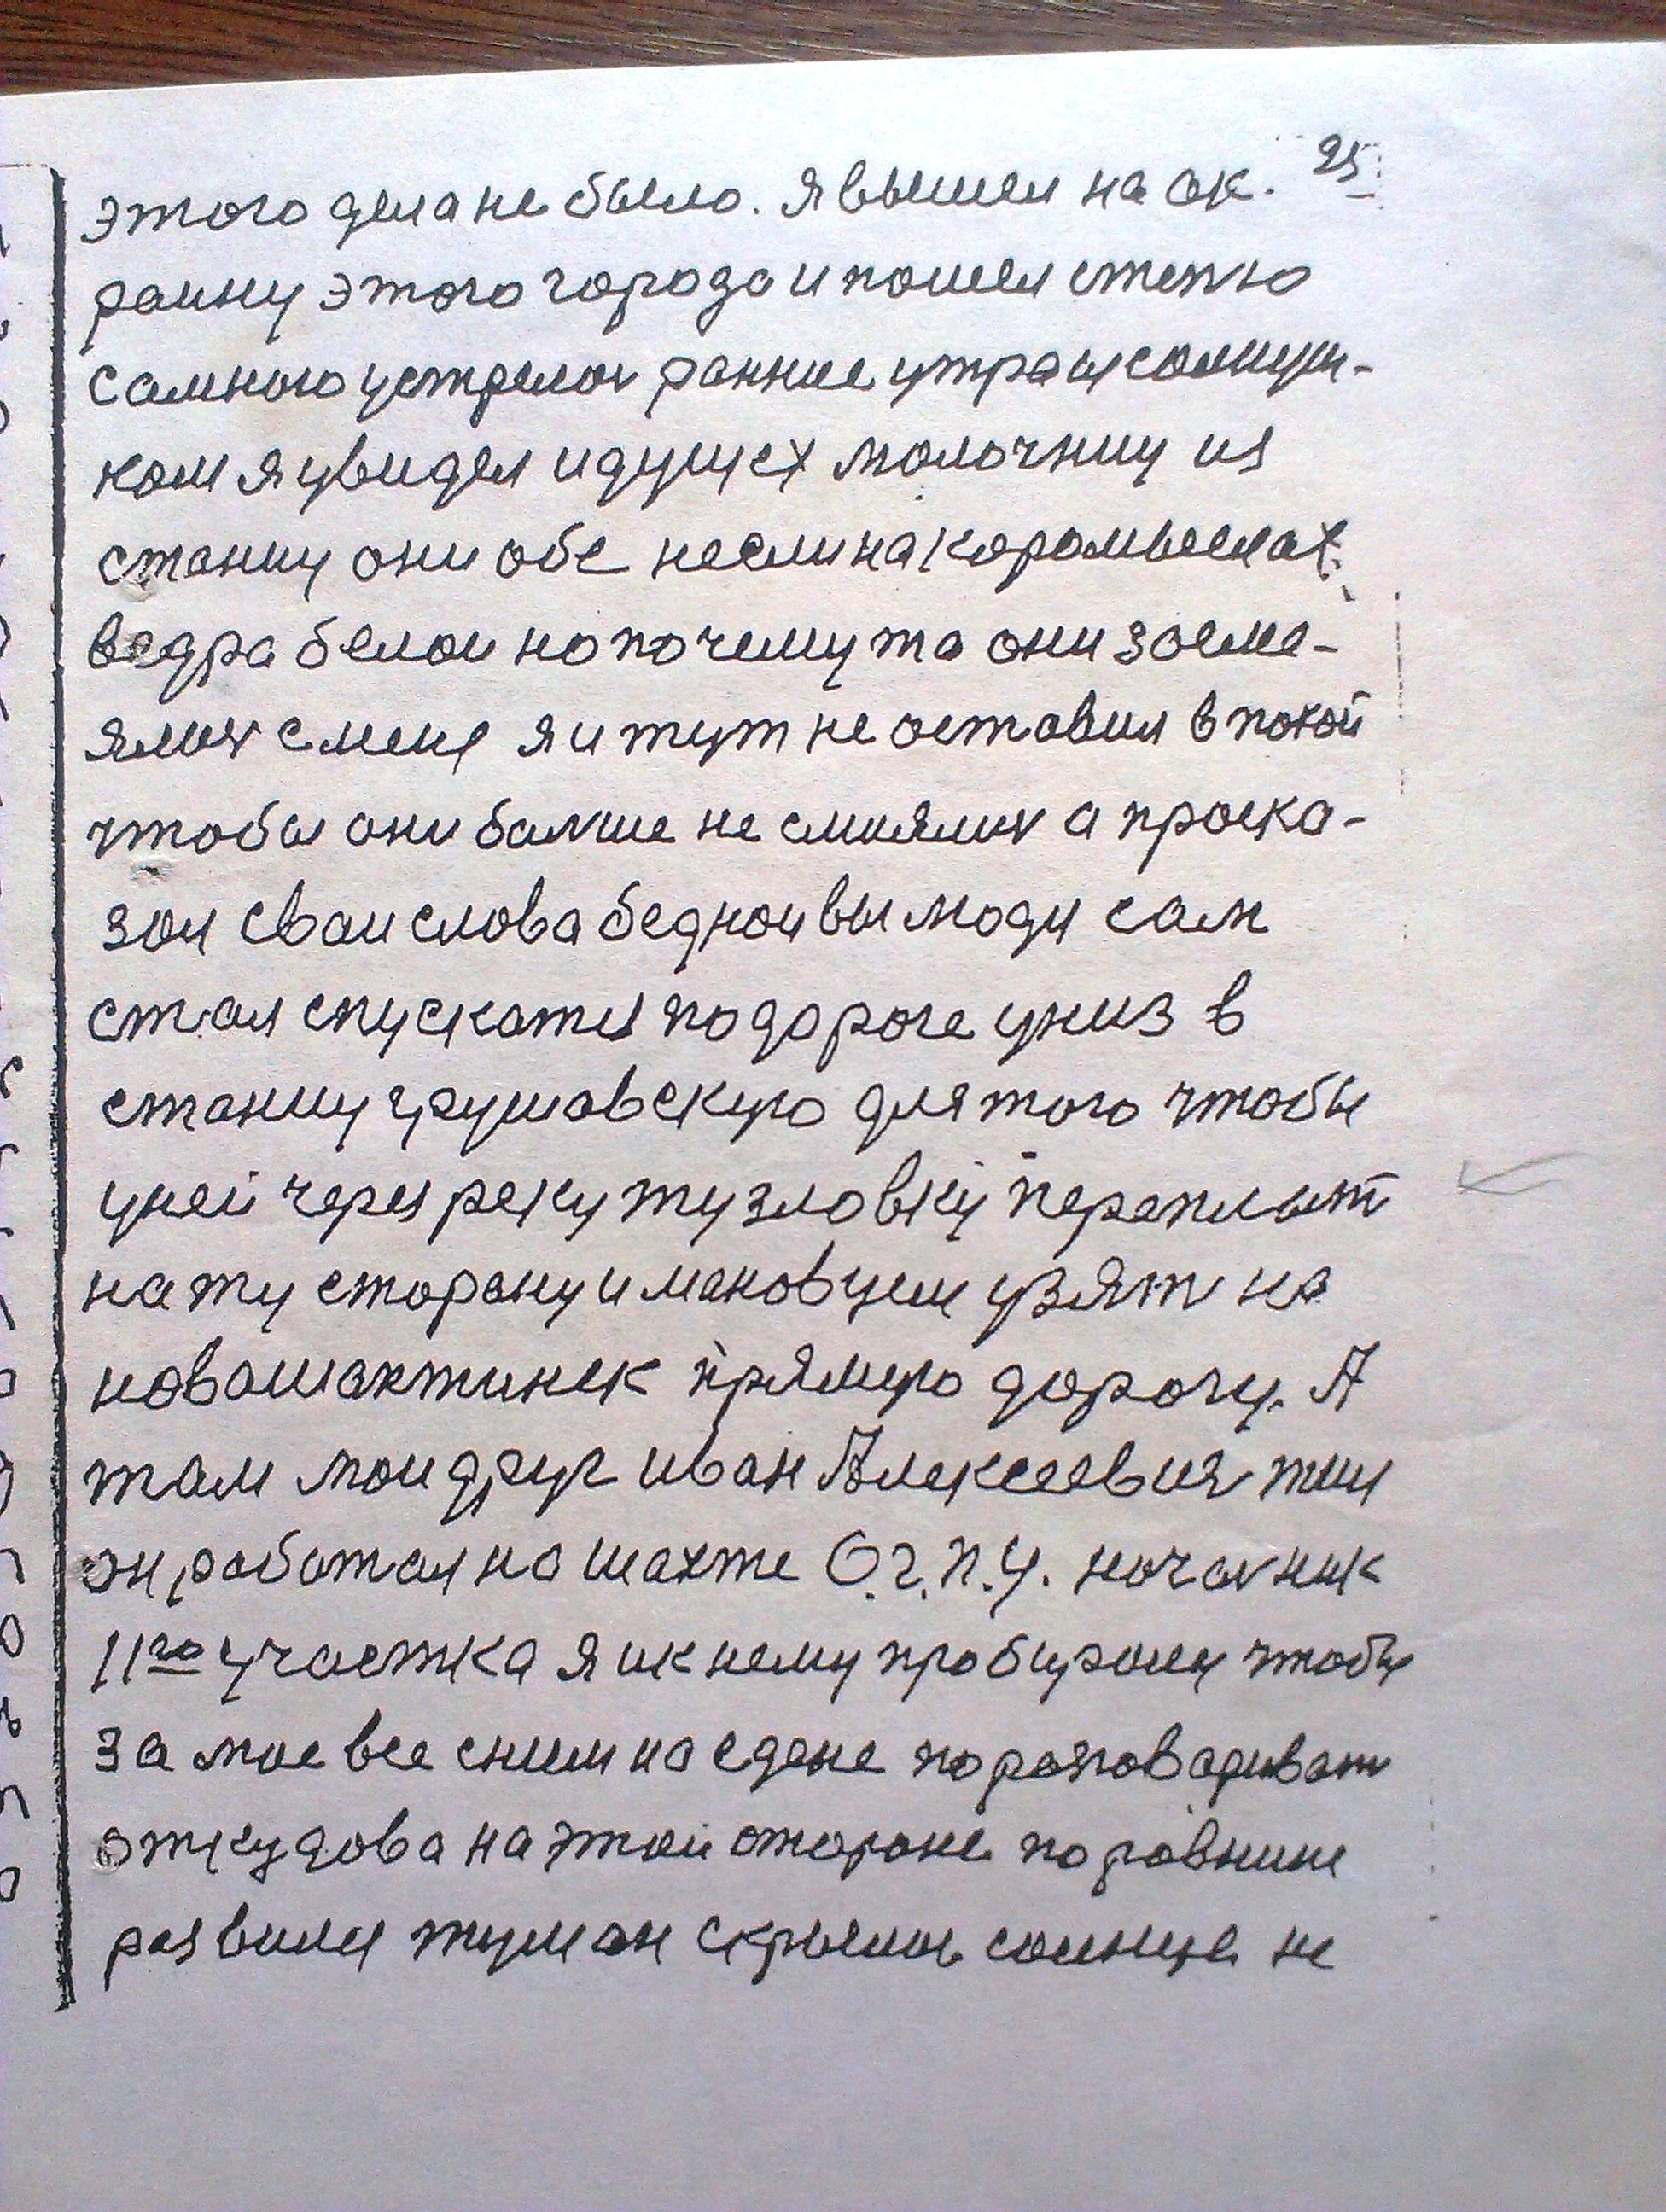 25.
этого дела не было. Я вышел на ок-
раину этого города и пошел степю
самною устрелас ранние утра и солнуш-
ком я увидел идущех молочниу из
станиу они обе несли на коромыслах
ведра белои но почему та они засме-
ялис с меня я и тут не оставил в покой
чтобы они балше не смиялис а проска-
зал сваи слова беднои вы люди сам
стал спускатися по дороге униз в
станиу грушавскую для того чтобы
уней через реку тузловку переплыт
на ту сторону и мановцем узят на
новошахтинск прямую дорогу. А
там мои друг иван Алексеевич жил
он работал на шахте О.г.п.у. начальник
11го участка я и к нему пробираюс чтобы
за мое все сним на едене поразговариват
откудова на этой стороне по равнине
развился туман скрылось солнце не